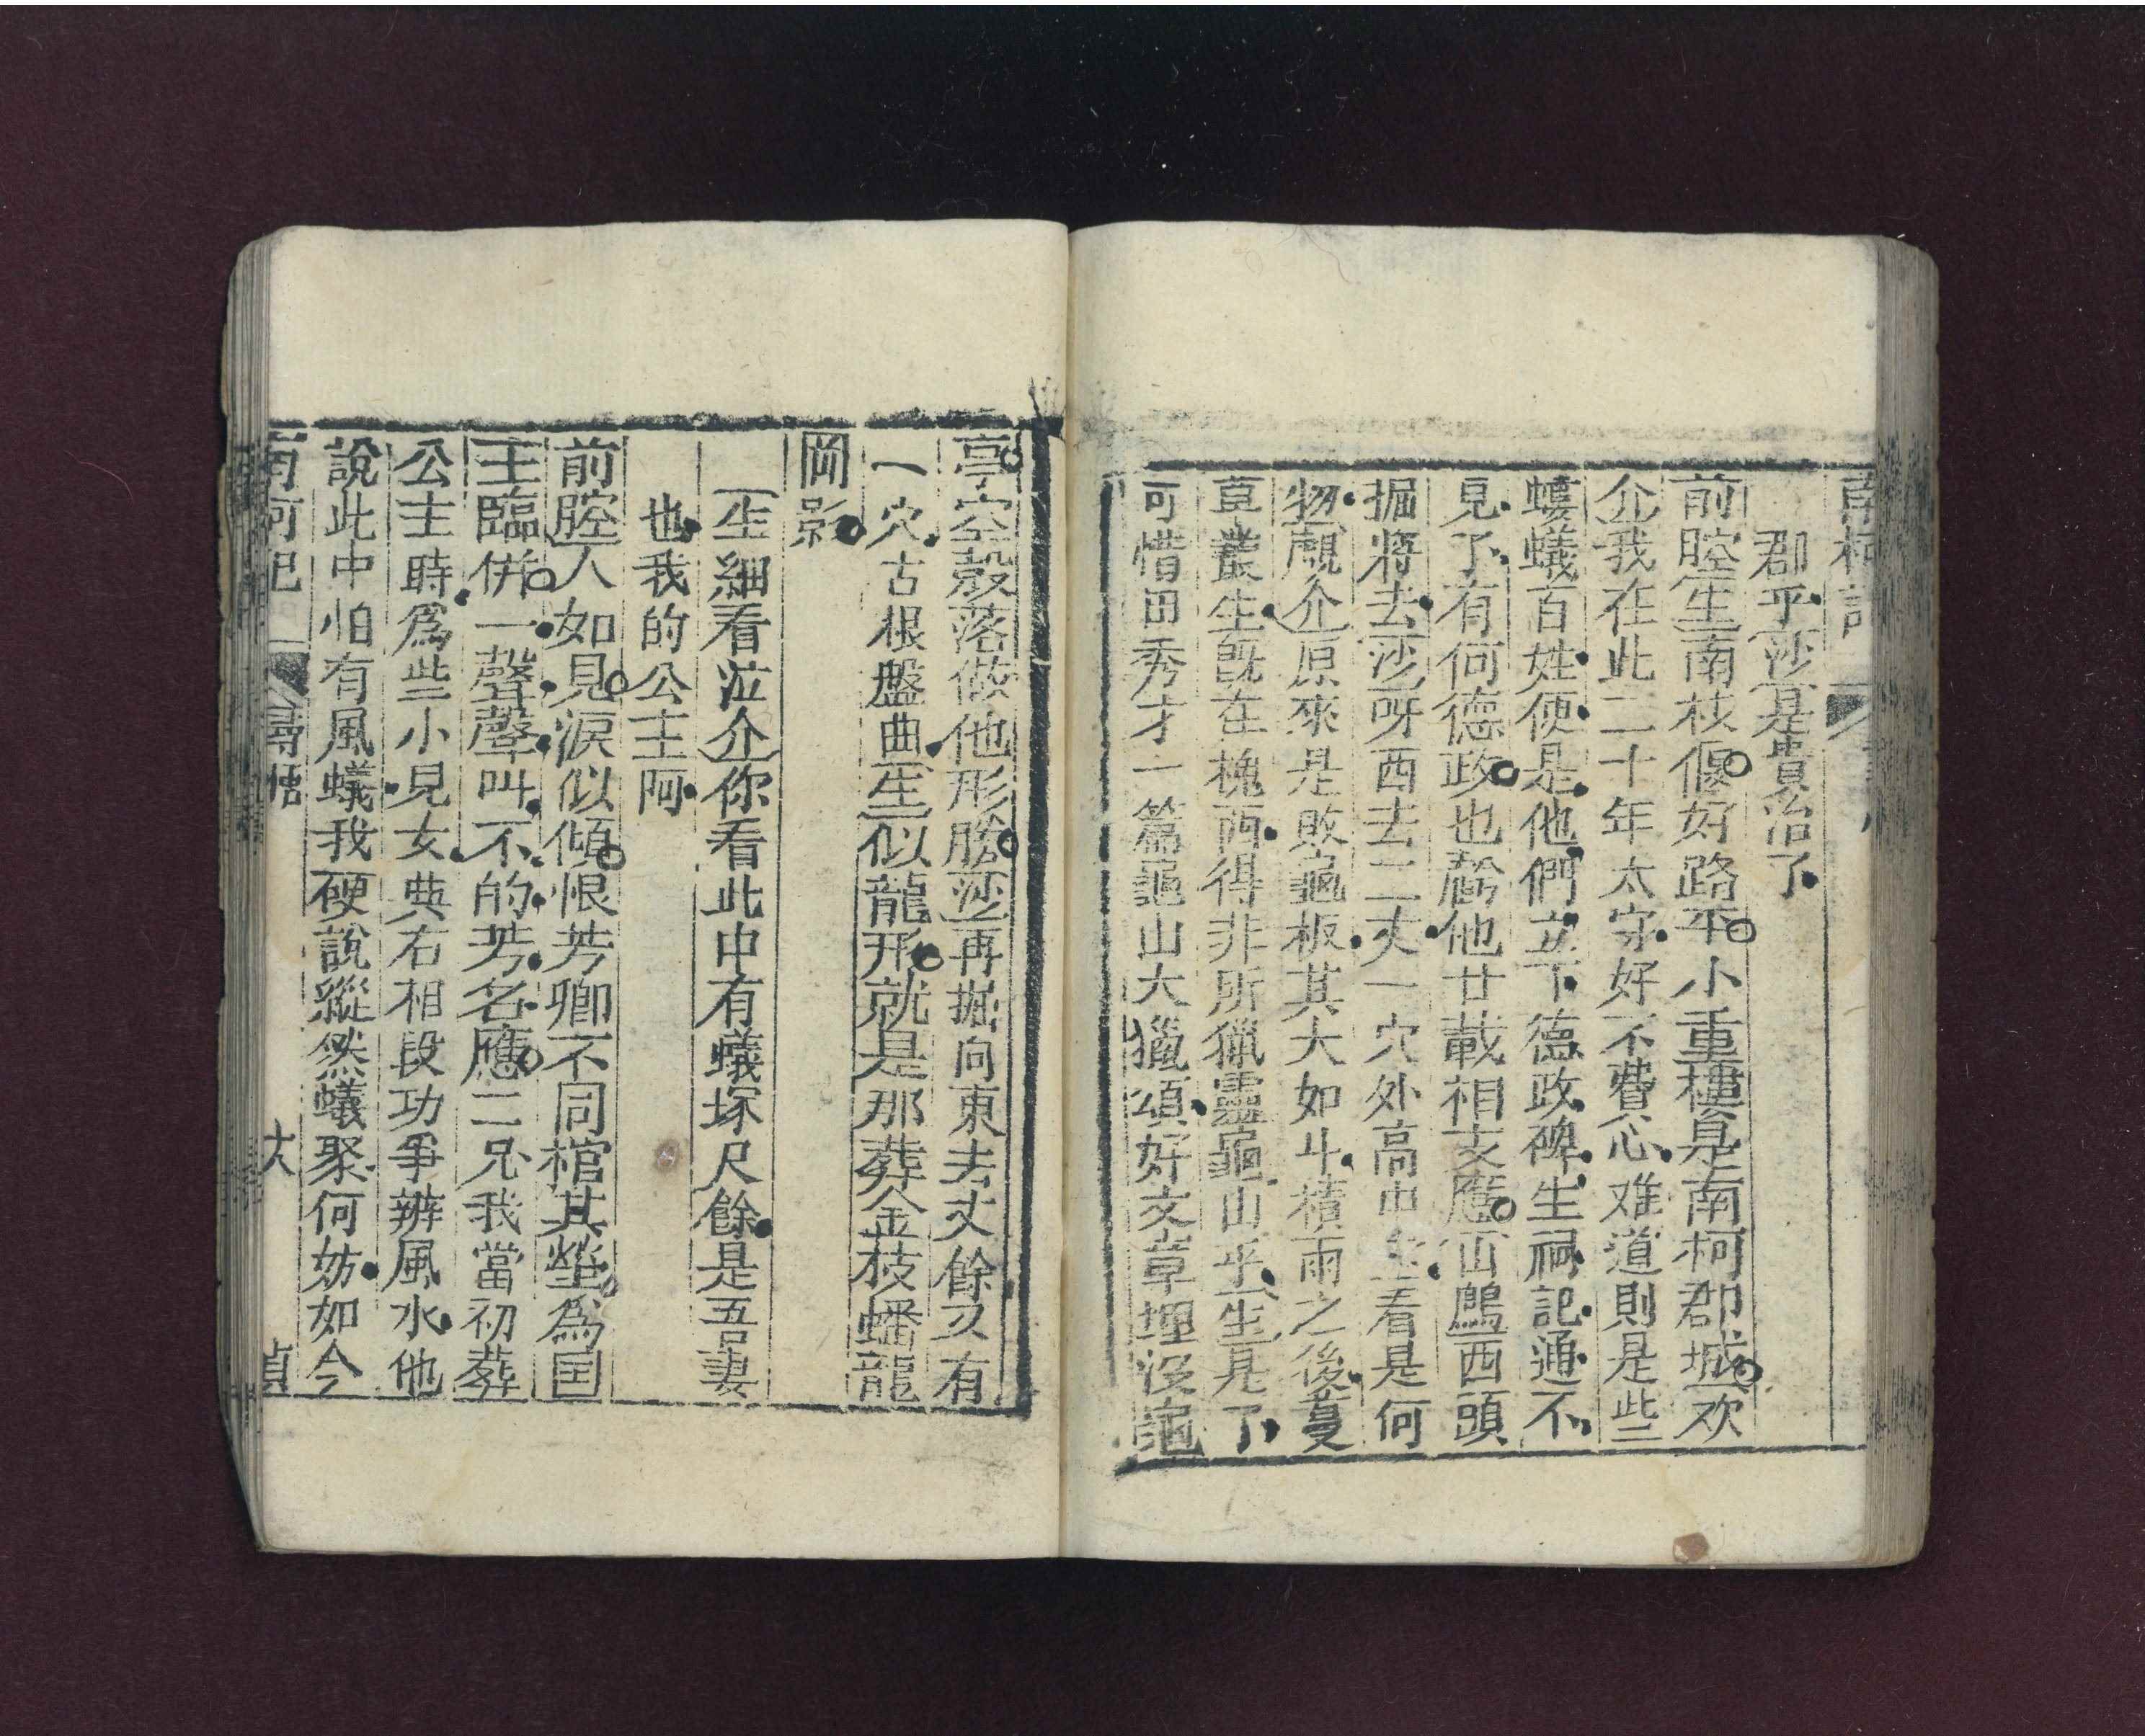 南柯記
郡乎沙是貴治了
前腔生南枝偃好路平小重樓是南柯郡城欢
介我在此二十年太守好不費心难道則是些
螻蟻百姓便是他們立下德政碑生祠記通不
見了有何德政也虧他廿載相支應山鷓西頭
掘將去沙呀西去二丈一穴外高中看是何
物覷介原來是敗龜板其大如斗積雨之後蔓
草叢生既在槐西得非所獵靈龜山乎生是了
可惜田秀才一篇龜山大獵頌好文章埋沒龜
亭空殼落做他形勝沙再掘向東去丈餘又有
一穴古根盤曲生似龍形就是那葬金枝蟠龍
岡影
生細看泣介你看此中有蟻塚尺餘是吾妻
也我的公主阿
前腔人如見淚似傾恨芳卿不同棺其塋為国
主臨併一聲聲叫不的芳名應二兄我當初葬
公主時為些小兒女與右相段功爭辨風水他
說此中怕有風蟻我硬說縱然蟻聚何妨如今
南柯記 尋悟 大 貞